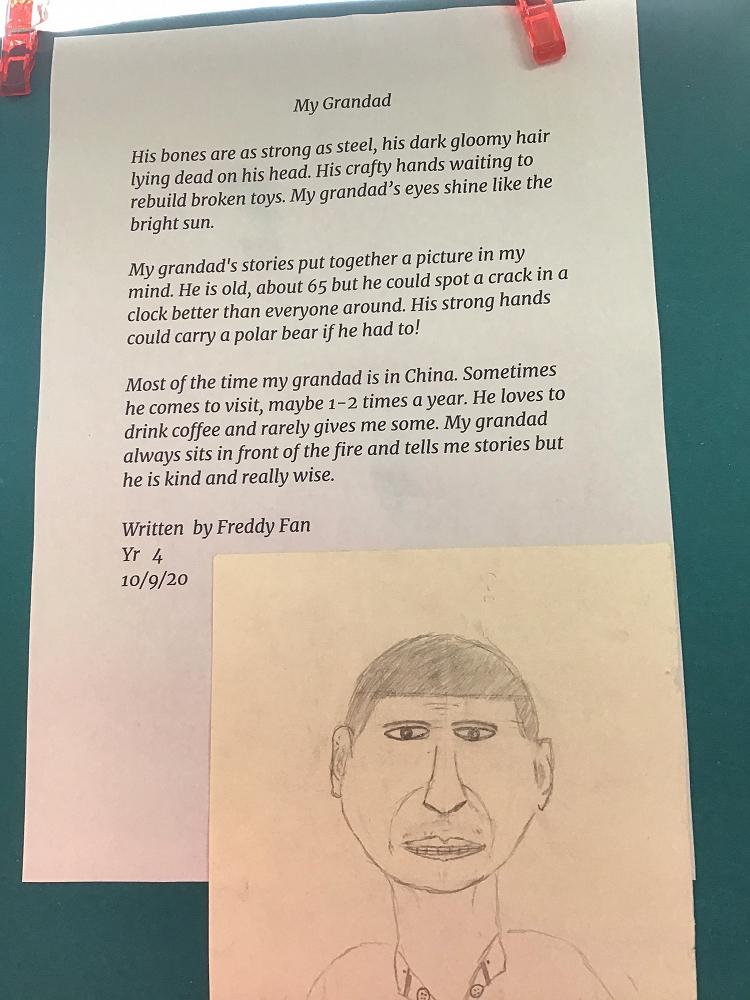 My Grandad
His bones are as strong as steel, his dark gloomy hair
lying dead on his head. His crafty hands waiting to
rebuild broken toys. My grandad's eyes shine like the
bright sun.
My grandad's stories put together a picture in my
mind. He is old, about 65 but he could spot a crack in a
clock better than everyone around. His strong hands
could carry a polar bear if he had to!
Most of the time my grandad is in China. Sometimes
he comes to visit, maybe 1-2 times a year. He loves to
drink coffee and rarely gives me some. My grandad
always sits in front of the fire and tells me stories but
he is kind and really wise.
Written by Freddy Fan
Yr 4
10/9/20